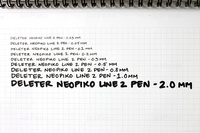 DELETER NEOPIKO LINE 2 PEN - 0.03 MM
DELETER NEOPIKO LINE 2 PEN - 0.05 MM
DELETER NEOPIKO LINE 2 PEN - 0.1 MM
DELETER NEOPIKO LINE 2 PEN - 0.2 MM
DELETER NEOPIKO LINE 2 PEN - 0.3 MM
DELETER NEOPIKO LINE 2 PEN - 0.5 MM
DELETER NEOPIKO LINE 2 PEN - 0.8 MM
DELETER NEOPIKO LINE 2 PEN - 1.0 MM
DELETER NEOPIKO LINE 2 PEN - 2.0 MM